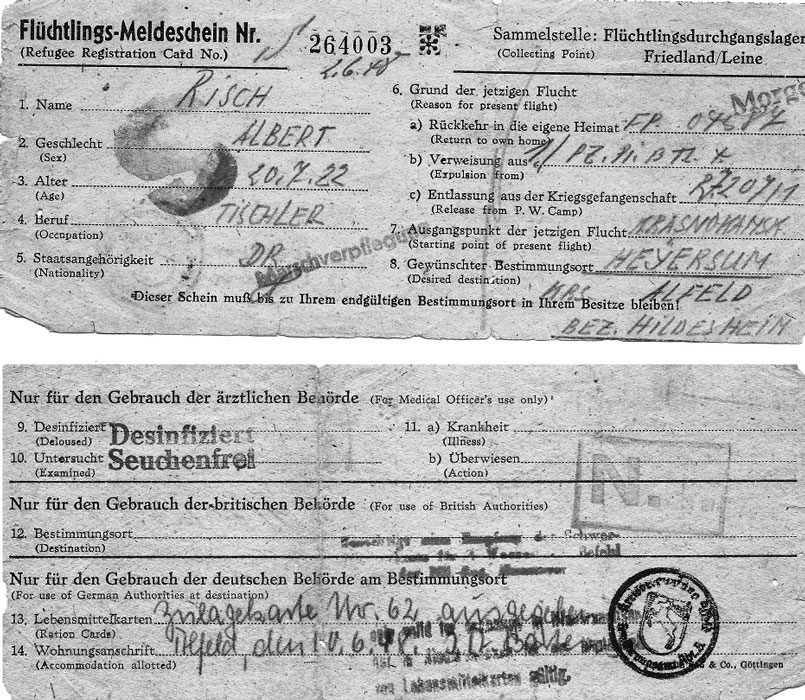 Flüchtlings-Meldeschein Nr.
(Refugee Registration Card No.)
264003
2.6.48
Sammelstelle: Flüchtlingsdurchgangslager
(Collecting Point) Friedland/Leine
1. Name RISCH
2. Geschlecht ALBERT
(Sex)
3. Alter 20.7.22
(Age)
4. Beruf TISCHLER
(Occupation)
5. Staatsangehörigkeit DR
(Nationality)
Marschverpflegung
6. Grund der jetzigen Flucht
(Reason for present flight)
a) Rückkehr in die eigene Heimat FP
(Return to own home)
b) Verweisung aus
(Expulsion from)
c) Entlassung aus der Kriegsgefangenschaft
(Release from P. W. Camp)
7. Ausgangspunkt der jetzigen Flucht
(Starting point of present flight)
8. Gewünschter Bestimmungsort HEYERSUM
(Desired destination) KRS. ALFELD
BEZ. HILDESHEIM
Dieser Schein muß bis zu Ihrem endgültigen Bestimmungsort in Ihrem Besitze bleiben!
Nur für den Gebrauch der ärztlichen Behörde (For Medical Officer's use only)
9. Desinfiziert Desinfiziert
(Deloused)
10. Untersucht Seuchenfrei
(Examined)
11. a) Krankheit
(Illness)
b) Überwiesen
(Action)
Nur für den Gebrauch der britischen Behörde (For use of British Authorities)
12. Bestimmungsort
(Destination)
Nur für den Gebrauch der deutschen Behörde am Bestimmungsort
(For use of German Authorities at destination)
13. Lebensmittelkarten Zulagekarte Nr. 62 ausgegeben
(Ration Cards)
14. Wohnungsanschrift Alfeld, den 10.6.48.
(Accommodation allotted)
von Lebensmittelkarten gültig.
& Co., Göttingen